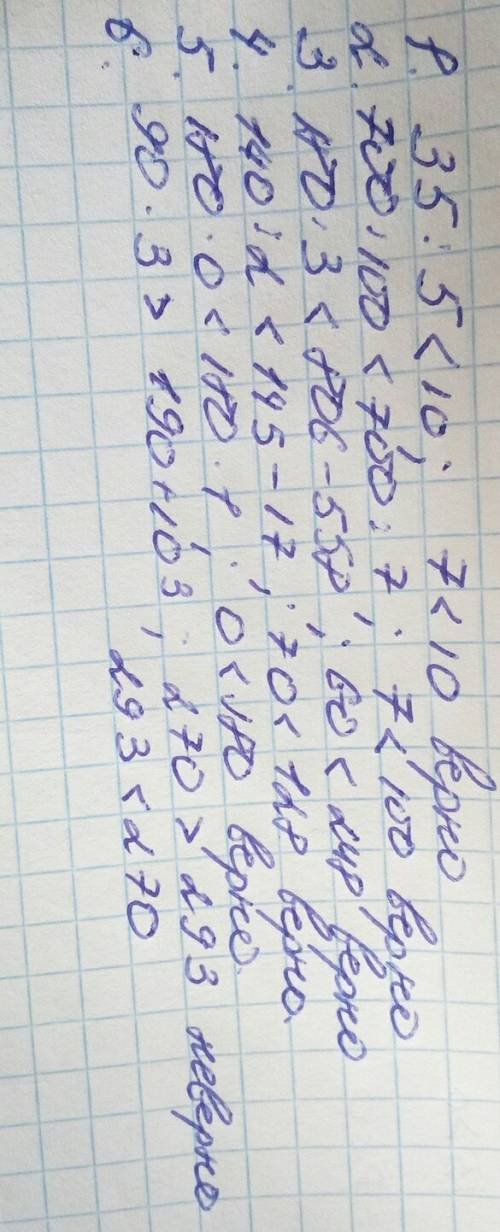 1. 35 : 5 < 10; 7 < 10 верно
2. 700 : 100 < 700 : 7; 7 < 100 верно
3. 180 : 3 < 806 - 558; 60 < 248 верно
4. 140 : 2 < 145 - 17; 70 < 128 верно.
5. 180 · 0 < 180 · 1; 0 < 180 верно.
6. 90 · 3 > 190 + 103; 270 > 293 неверно
293 < 270